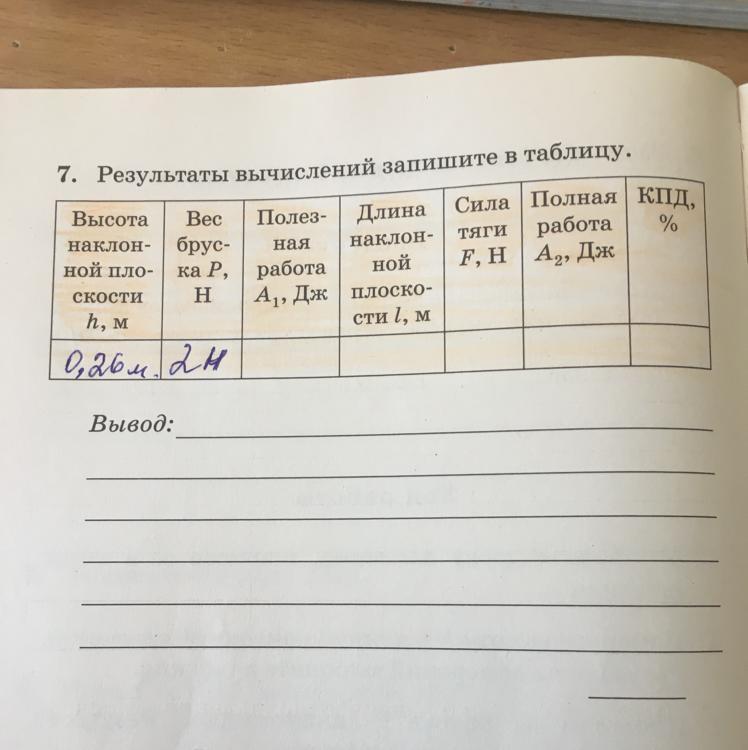 7. Результаты вычислений запишите в таблицу.
Высота
наклон-
ной пло-
скости
h, м
Вес
брус-
ка P,
Н
Полез-
ная
работа
A₁, Дж
Длина
наклон-
ной
плоско-
сти l, м
Сила
тяги
F, Н
Полная
работа
A₂, Дж
КПД,
%
0,26м.
2Н
Вывод: